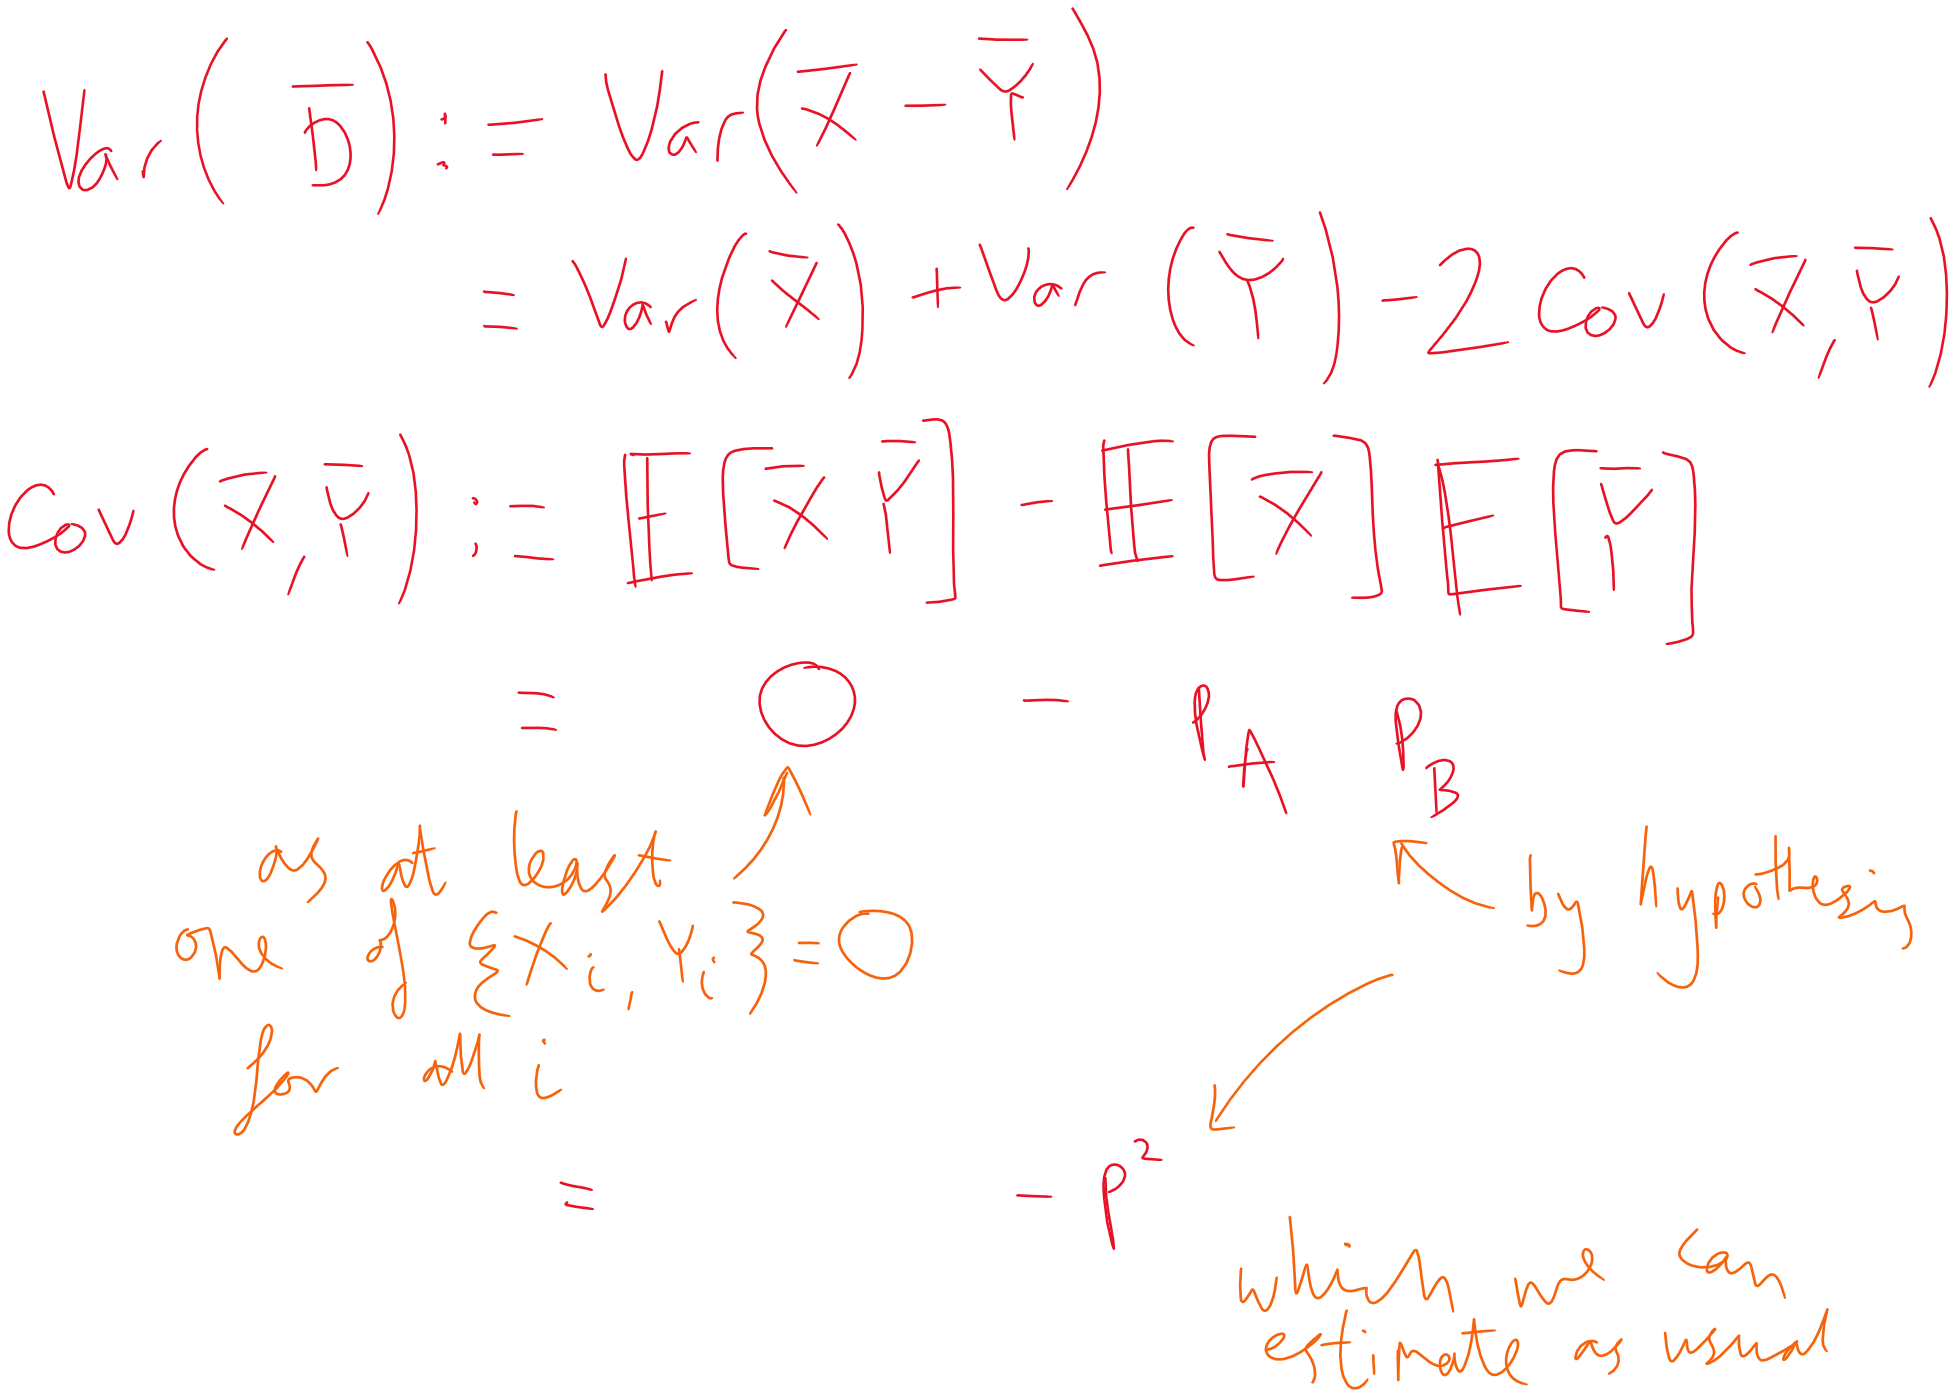 Var(D̅) := Var(X̅ - Y̅)
= Var(X̅) + Var(Y̅) - 2 Cov(X̅, Y̅)
Cov(X̅, Y̅) := 𝔼[X̅ Y̅] - 𝔼[X̅] 𝔼[Y̅]
= 0 - p_A p_B
as at least
one of {X_i, Y_i} = 0
for all i
by hypothesis
= - p²
which we can
estimate as usual